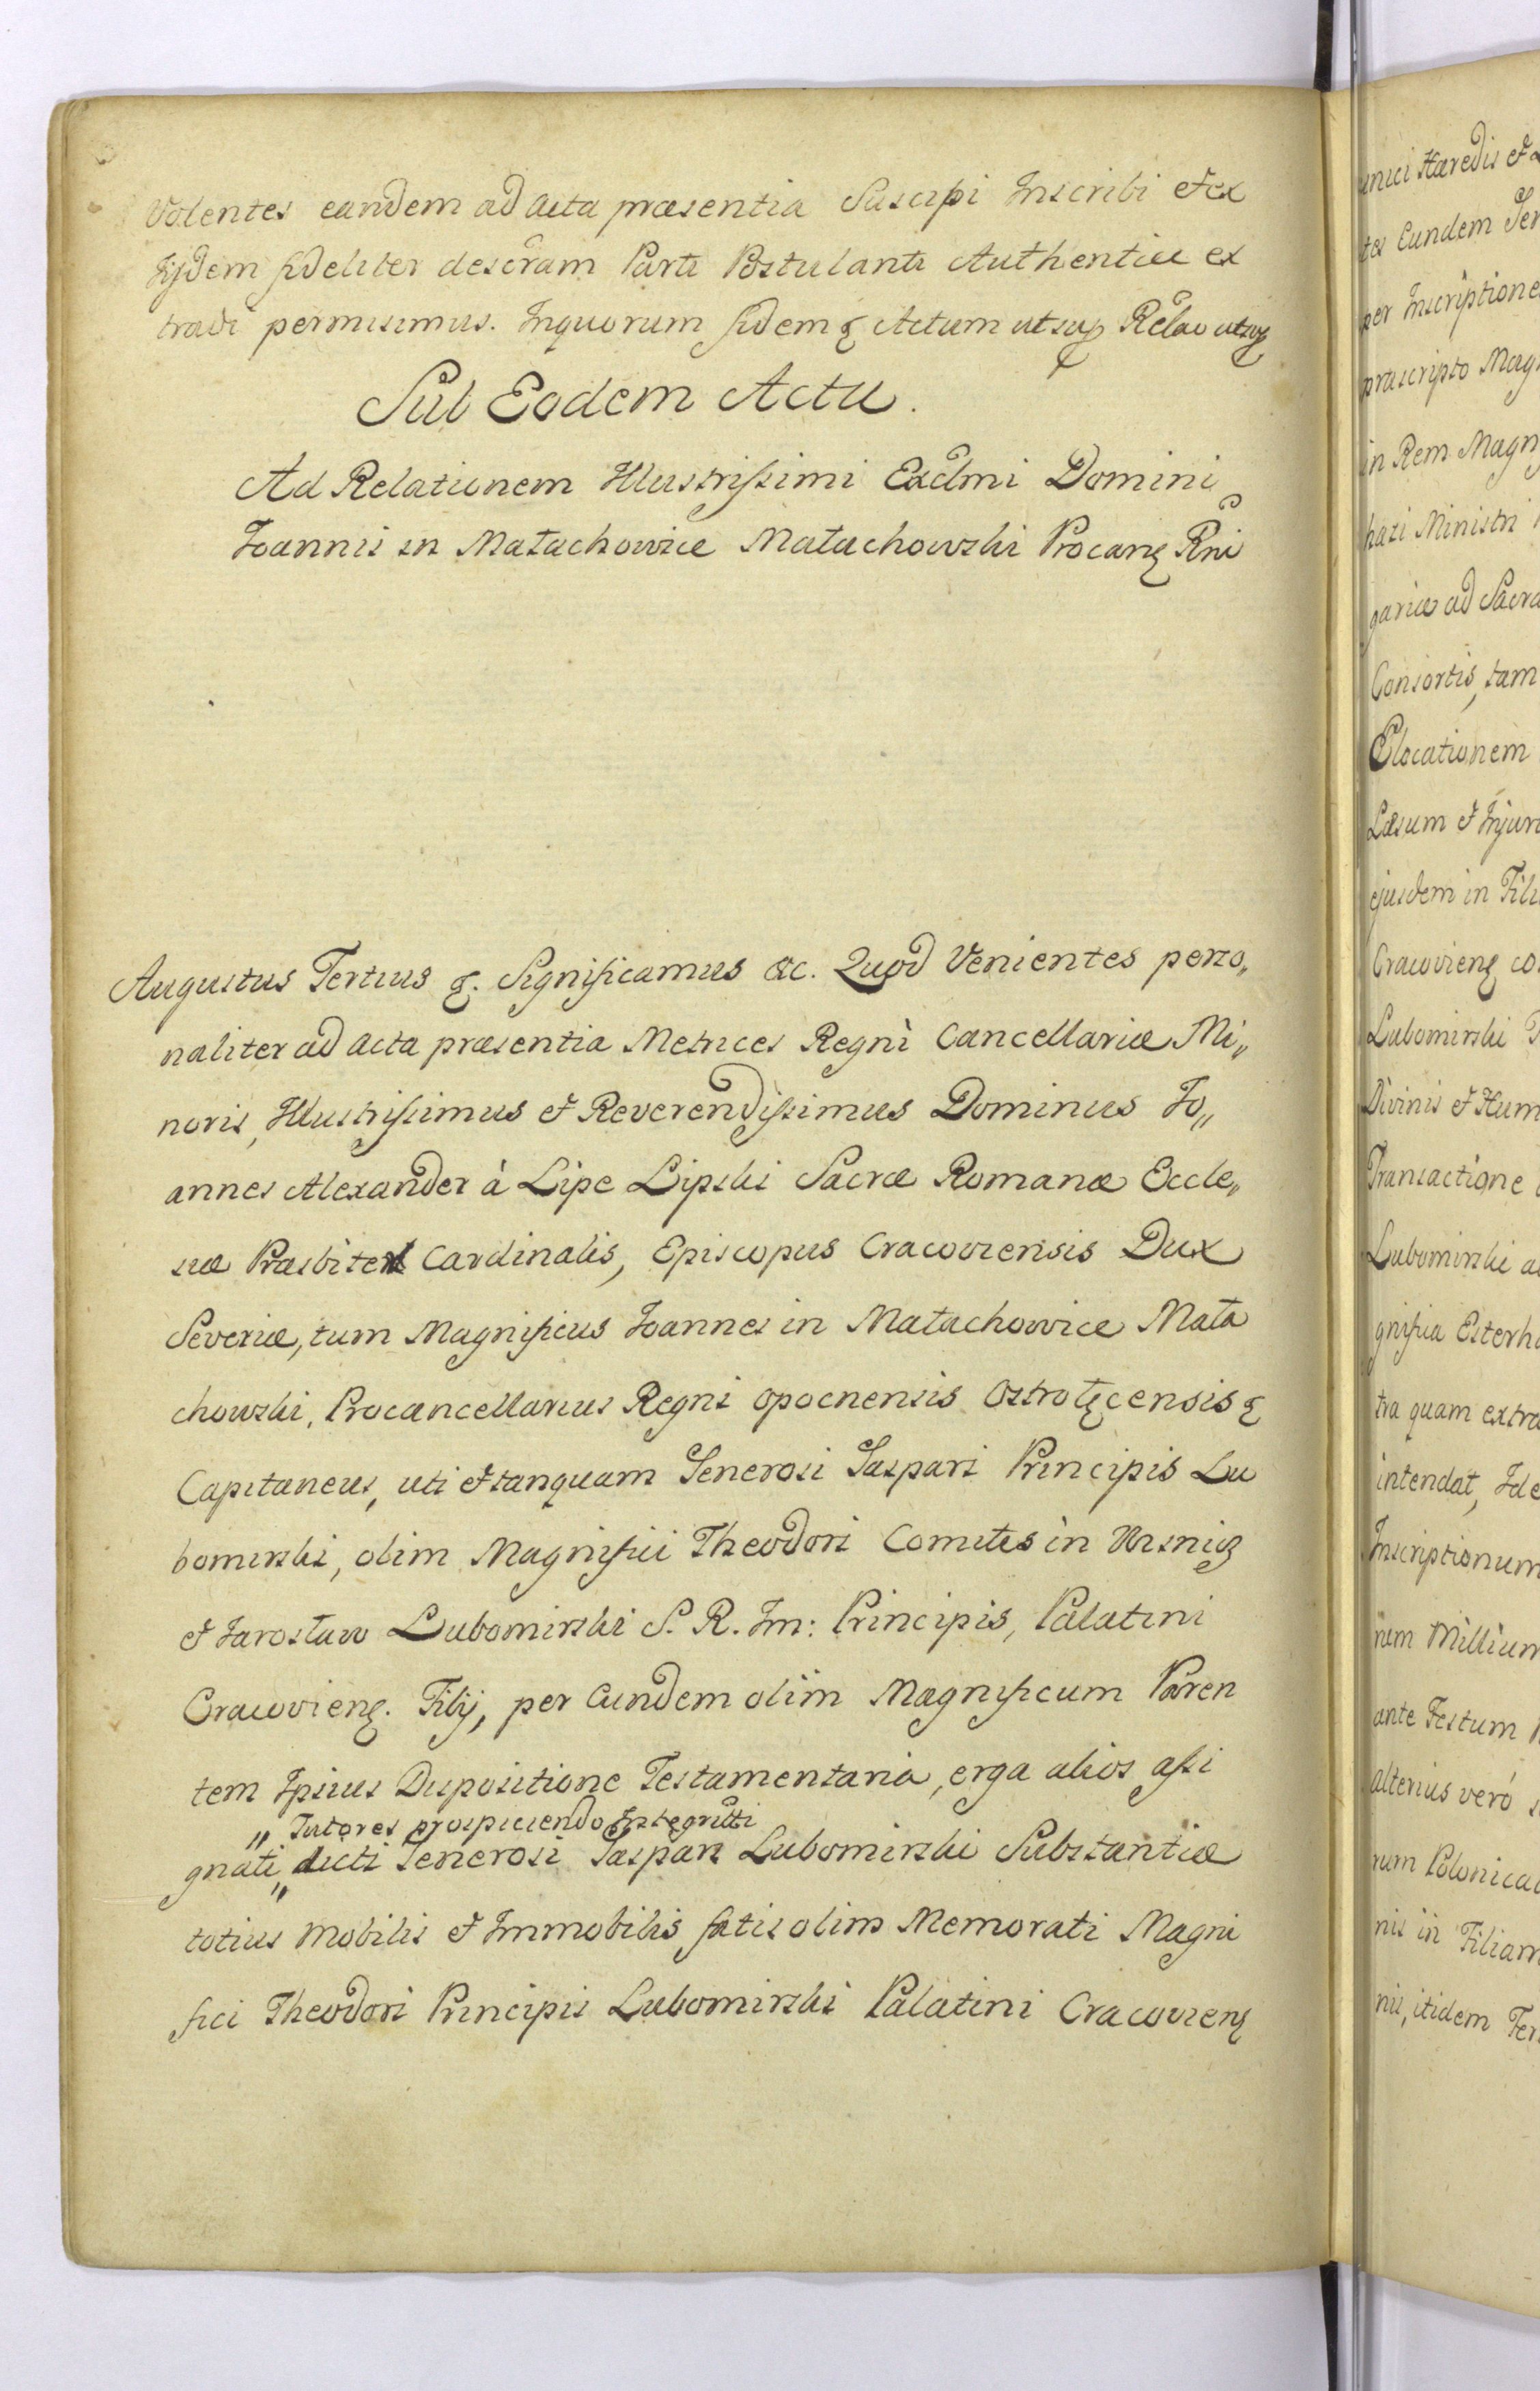 Volentes eandem ad Acta præsentia Suscipi Inscribi et ex
Iisdem fideliter descram Parti Postulanti Authentice ex
tradi permisimus. In quorum fidem &c Actum ut supra Relao ut supra
Sub Eodem Actu.
Ad Relationem Illustrissimi Excllmi Domini
Joannis in Małachowice Małachowski Procanc Rni
Augustus Tertius &c. Significamus &c. Quod Venientes perso„
naliter ad Acta præsentia Metrices Regni Cancellariæ Mi„
noris, Illustrissimus et Reverendissimus Dominus Jo„
annes Alexander à Lipe Lipski Sacræ Romanæ Eccle„
siæ Præsbiter Cardinalis, Episcopus Cracoviensis Dux
Severiæ, tum Magnificus Joannes in Małachowice Mała
chowski, Procancellarius Regni Opocnensis Ostrołęcensis &c
Capitaneus, uti et tanquam Generosi Gaspari Principis Lu
bomirski, olim Magnifici Theodori Comitis in Wisnicz
et Jarosław Lubomirski S. R. Im: Principis, Palatini
Cracovien. Filij, per Eundem olim Magnificum Paren
tem Ipsius Dispositione Testamentaria, erga alios assi
„ Tutores prospiciendo Integritti
gnati„ dicti Generosi Gaspari Lubomirski Substantiæ
totius Mobilis et Immobilis fatis olim Memorati Magni
fici Theodori Principis Lubomirski Palatini Cracovien
unici Hæredis et
tes Eundem
per Inscriptione
præscripto Mag
in Rem Magn
hazi Ministri
gariæ ad Sacra
Consortis, tam
Elocationem
Læsum et Injuri
ejusdem in Fili
Cracovien co
Lubomirski
Divinis et Hum
Transactione
Lubomirski a
gnifica Esterh
tra quam extra
intendat, Ide
Inscriptionum
rum Millium
ante Festum
alterius verò
rum Polonical
nis in Filiam
nis, itidem